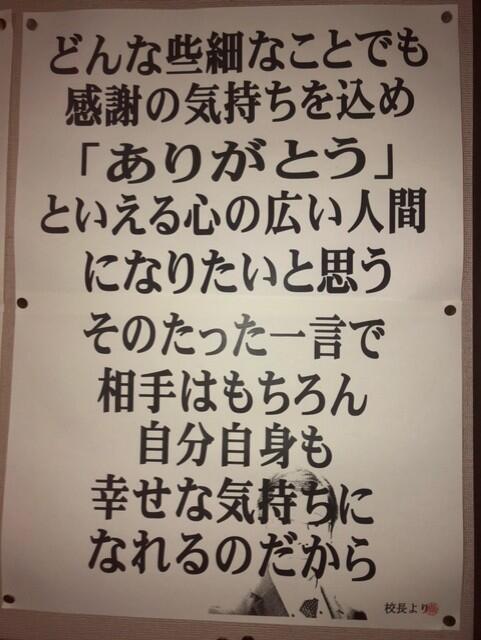 どんな些細なことでも
感謝の気持ちを込め
「ありがとう」
といえる心の広い人間
になりたいと思う
そのたった一言で
相手はもちろん
自分自身も
幸せな気持ちに
なれるのだから
校長より